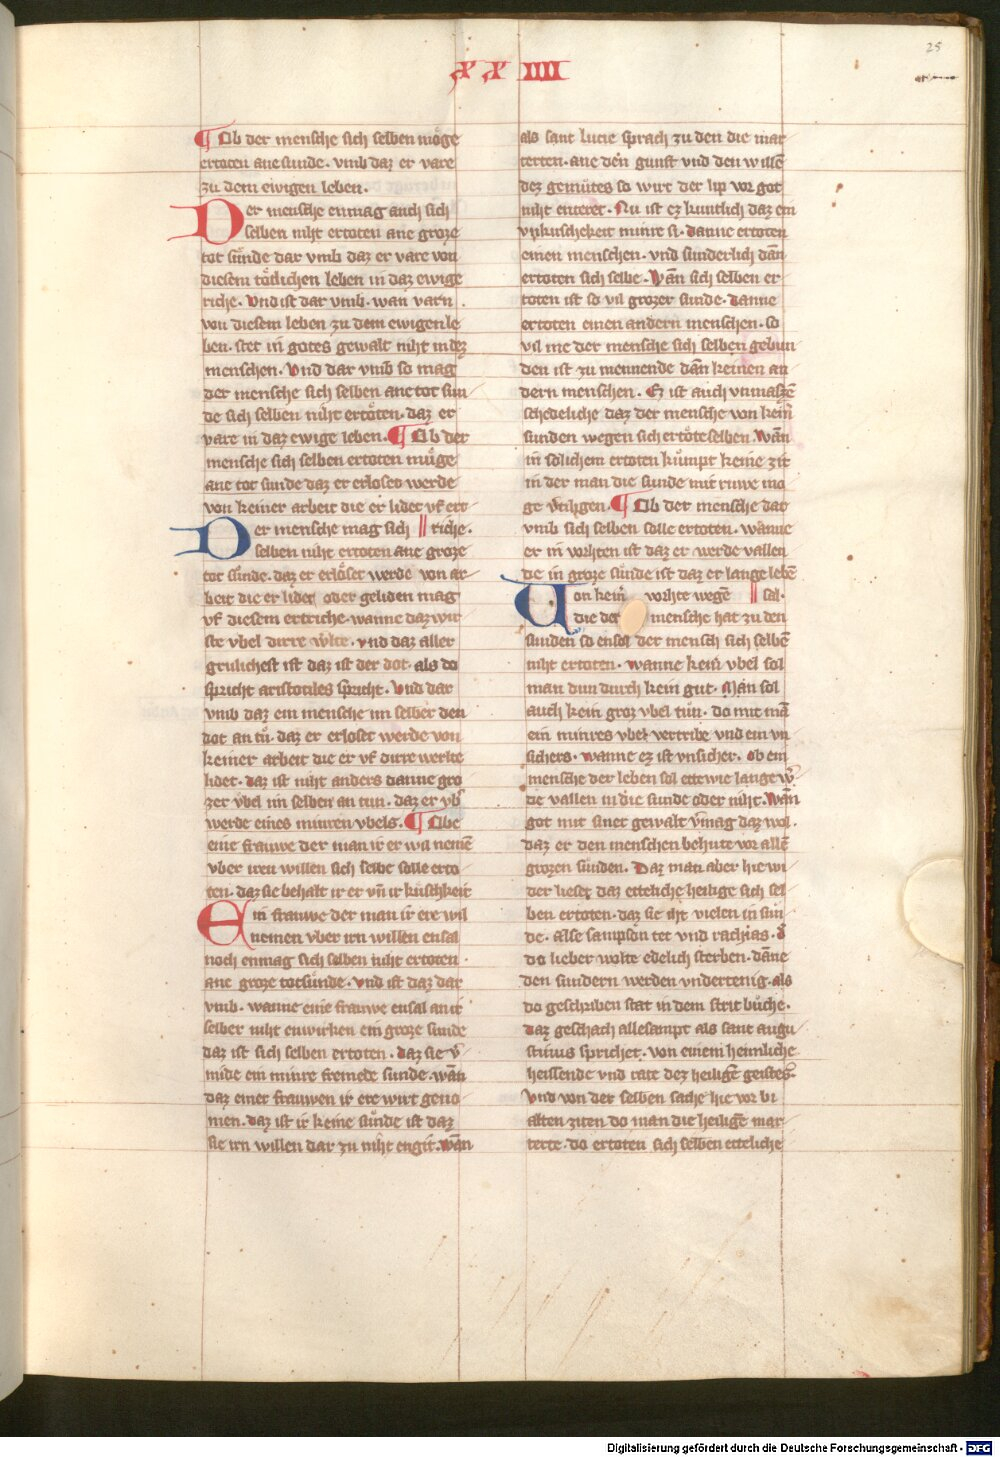 25
XX IIII
¶ Ob der mensche sich selben möge
ertoten ane sunde. vmb daz er vare
zu dem ewigen leben.
Der mensche enmag auch sich
selben niht ertoten ane groze
tot sünde dar vmb daz er vare von
diesem tödlichen leben in daz ewige
riche. Vnd ist dar vmb. wan varn
von diesem leben zu dem ewigen le
ben. stet in gotes gewalt niht in dez
menschen. Vnd dar vmb so mag
der mensche sich selben ane tot sun
de sich selben niht ertöten. daz er
vare in daz ewige leben. ¶ Ob der
mensche sich selben ertoten müge
ane tot sunde daz er erloset werde
von keiner arbeit die er lidet vf ert
Der mensche mag sich || riche.
selben niht ertoten ane groze
tot sünde. daz er erlöset werde von ar
beit die er lidet oder geliden mag
vf diesem ertriche. wanne daz wir
ste vbel dirre w̄lte. vnd daz aller
grulichest ist daz ist der dot. als do
spricht aristotiles spricht. Vnd dar
vmb daz ein mensche im selber den
dot an tů. daz er erloset werde von
keiner arbeit die er vf dirre werlte
lidet. daz ist niht anders danne gro
zer v̈bel im selben an tun. daz er vb̄
werde eines minren vbels. ¶ Obe
eine frauwe der man ir er wil nemē
vber iren willen sich selbe solle erto
ten. daz sie behalt ir er vn̄ ir kuschkeit
Ein frauwe der man ir ere wil
nemen vber irn willen ensal
noch enmag sich selben niht ertoten.
ane groze totsünde. vnd ist daz dar
vmb. wanne eine frauwe ensal an ir
selber niht enwirken ein groze sunde
daz ist sich selben ertoten. daz sie v̄
mide ein minre fremede sunde. wān
daz einer frauwen ir ere wirt geno
men. daz ist ir keine sünde ist daz
sie irn willen dar zu niht engit. wān
als sant lucie sprach zu den die mar
terten. ane den gunst vnd den willē
dez gemütes so wirt der lip vor got
niht enteret. Nu ist ez kuntlich daz ein
vnkuschekeit minre si. danne ertoten
einen menschen. vnd sunderlich dān
ertoten sich selbe. Wān sich selben er
toten ist so vil grozer sunde. danne
ertoten einen andern menschen. so
vil me der mensche sich selben gebun
den ist zu mennende dān keinen an
dern menschen. Ez ist auch vnmaszē
schedeliche daz der mensche von kein̄
sunden wegen sich ertöte selben. Wān
in solichem ertoten kümpt keine zit
in der man die sunde mit ruwe mo
ge v̄tilgen. ¶ Ob der mensche dar
vmb sich selben solle ertoten. wanne
er in vorhten ist daz er werde vallen
die in groze sünde ist daz er lange lebē
Von kein̄ vorhte wegē || sal.
die der mensche hat zu den
sunden so ensol der mensch sich selbē
niht ertoten. wanne kein vbel sol
man dun durch kein gut. Man sol
auch kein groz vbel tün. do mit mā
ein minres vbel vertribe vnd ein vn
sichers. wanne ez ist vnsicher. ob ein
mensche der leben sol ettewie lange w̄
de vallen in die sunde oder niht. Wān
got mit siner gewalt v̄mag daz wol.
daz er den menschen behute vor allē
grozen sünden. Daz man aber hie wi
der lieset daz etteliche heilige sich sel
ben ertoten. daz sie iht vielen in sün
de. Alse sampson tet vnd rachias. d̄
do lieber wolte edelich sterben. dāne
den sundern werden vndertenig. als
do geschriben stat in dem strit büche.
daz geschach allesampt als sant augu
stinus sprichet. von einem heimliche
heissende vnd rate dez heiligē geistes.
Vnd von der selben sache hie vor bi
alten ziten do man die heiligē mar
terte. do ertoten sich selben etteliche
Digitalisierung gefördert durch die Deutsche Forschungsgemeinschaft - DFG